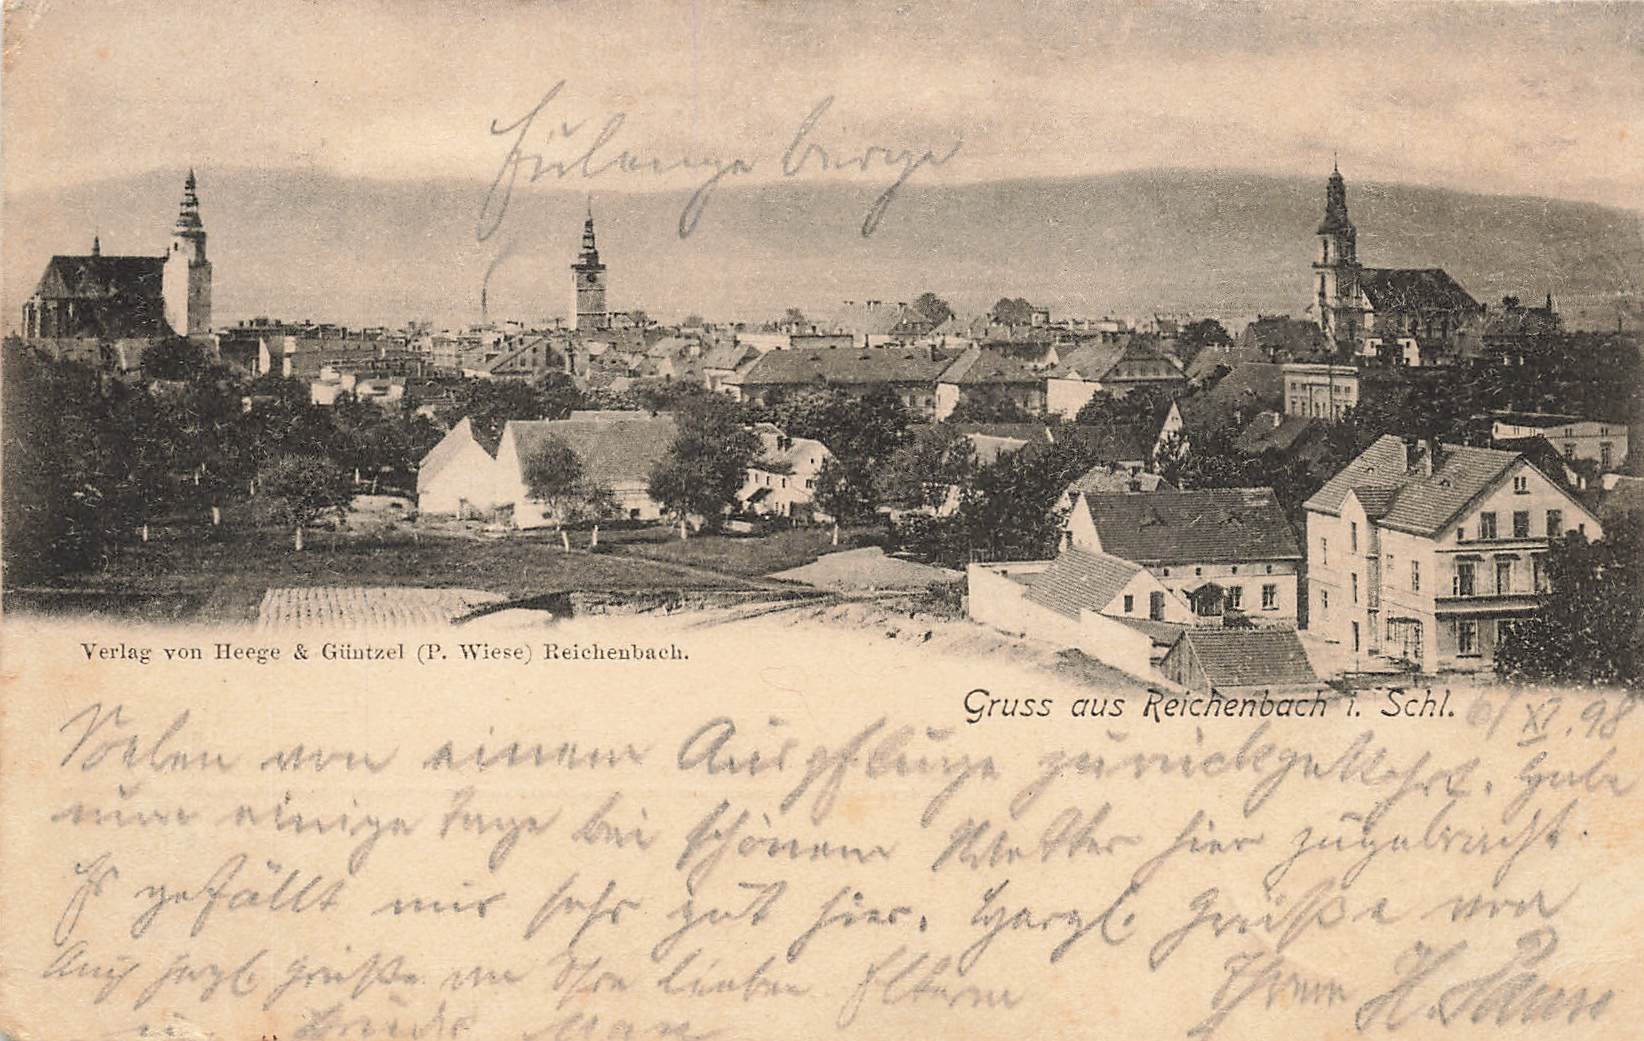 Eulengebirge
Verlag von Heege & Güntzel (P. Wiese) Reichenbach.
Gruss aus Reichenbach i. Schl.
6/XI. 98
Soeben von einem Ausfluge zurückgekehrt. Habe
nun einige Tage bei schönem Wetter hier zugebracht.
Es gefällt mir sehr gut hier. Herzl. Grüße von
Ihrem H.
Auch herzl. Grüße an Ihre lieben Eltern
u. Bruder Max